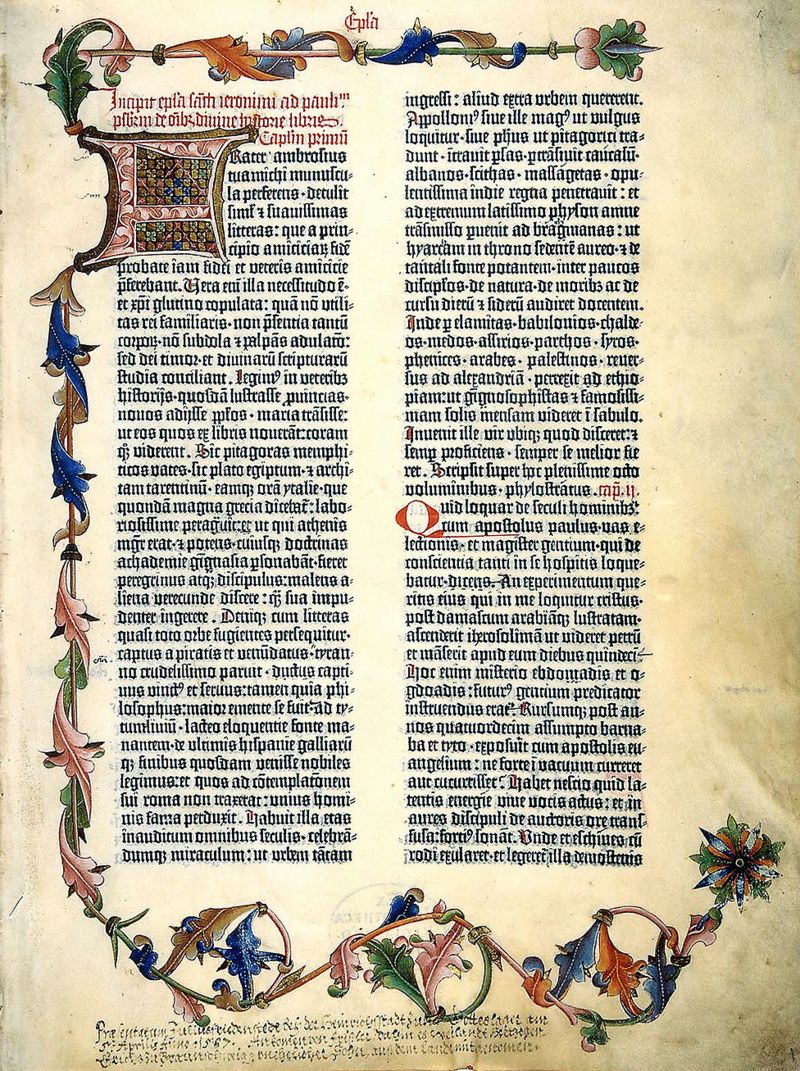 Ep̄la
Incipit ep̄la sāti ieronimi ad paulinū
p̄sbiteꝝ de oībꝫ divine historie libris
Capl'm primū
Frater ambrosius
tua michi munuscu-
la perferens · detulit
siml' ⁊ suavissimas
litteras : que a prin-
cipio amicicia⁊ fidē
probate iam fidei et veteris amicicie
p̄ferebant. Vera eni illa necessitudo ē·
et xpi glutino copulata : quā nō utili-
tas rei familiaris · non p̄sentia tantū
corpoꝝ · nō subdola ⁊ palpās adulatō :
sed dei timor · et divinarū scripturarū
studia conciliant. Legimꝰ in veteribꝫ
historijs · quosdā lustrasse ꝓvincias ·
novos adijsse ppl'os · maria trāsisse :
ut eos quos ex libris noverāt : coram
qꝫ viderent. Sic pitagoras memphi-
ticos vates · sic plato egiptum · ⁊ archi-
tam tarentinū · eamqꝫ orā ytalie · que
quondā magna grecia dicebat̄ : labo-
riosissime peragravit : et ut qui athenis
mgr̄ erat · ⁊ potens · cuiusqꝫ doctrinas
achademie gignasia ꝑsonabāt · fieret
peregrinus atqꝫ discipulus : malens a-
liena verecunde discere : qꝫ sua impu-
denter ingerere. Deniqꝫ cum litteras
quasi toto orbe fugientes persequitur ·
captus a piratis et venūdatus · tyran-
no crudelissimo paruit · ductus capti-
vus vinctꝰ et servus : tamen quia phi-
losophus : maior emente se fuit · ad ty-
tumlivium · lacteo eloquentie fonte ma-
nantem · de ultimis hispanie galliarū
qꝫ finibus quosdam venisse nobiles
legimus : et quos ad cōtemplationem
sui roma non traxerat : unius homi-
nis fama perduxit. Habuit illa etas
inauditum omnibus seculis · celebrā-
dumqꝫ miraculum : ut urbem tātam
ingressi : aliud extra urbem quererent.
Appollonꝰ sive ille magꝰ ut vulgus
loquitur · sive phus ut pitagorici tra-
dunt · ītravit ꝑsas · ꝑtrāsivit caucasū ·
albanos · scithas · massagetas · opu-
lentissima indie regna penetravit : et
ad extremum latissimo physon amne
trāsmisso ꝑvenit ad bragmanas : ut
hyarcam in throno sedentē aureo · ⁊ de
tantali fonte potantem · inter paucos
discipl'os · de natura · de moribꝫ ac de
cursu dierū ⁊ siderū audiret docentem.
Inde ꝑ elamitas · babilonios · chalde-
os · medos · assirios · parthos · syros ·
phenices · arabes · palestinos · rever-
sus ad alexandriā · perrexit ad ethio-
piam : ut gignosophistas ⁊ famosissi-
mam solis mensam videret ī sabulo.
Invenit ille vir ubiqꝫ quod disceret : ⁊
semꝑ proficiens · semper se melior fie-
ret. Scripsit super hoc plenissime octo
voluminibus · phylostratus. cap. ii.
Quid loquar de seculi hominibꝫ :
cum apostolus paulus · vas e-
lectionis · et magister gentium · qui de
conscientia tanti in se hospitis loque-
batur · dicens. An experimentum que-
ritis eius qui in me loquitur cristus.
post damascum arabiāqꝫ lustratam ·
ascenderit iherosolimā ut videret petrū
et māserit apud eum diebus quindeci
Hoc enim misterio ebdomadis et o-
gdoadis : futurꝰ gentium predicator
instruendus erat. Rursumqꝫ post an-
nos quatuordecim assumpto barna-
ba et tyto · exposuit cum apostolis eu-
angelium : ne forte ī vacuum curreret
aut cucurrisset. Habet nescio quid la-
tentis energie vive vocis actus : et in
aures discipuli de auctoris ore trans-
fusa : fortiꝰ sonāt. Unde et eschines cū
rodi exularet · et legeret̄ illa demostenis